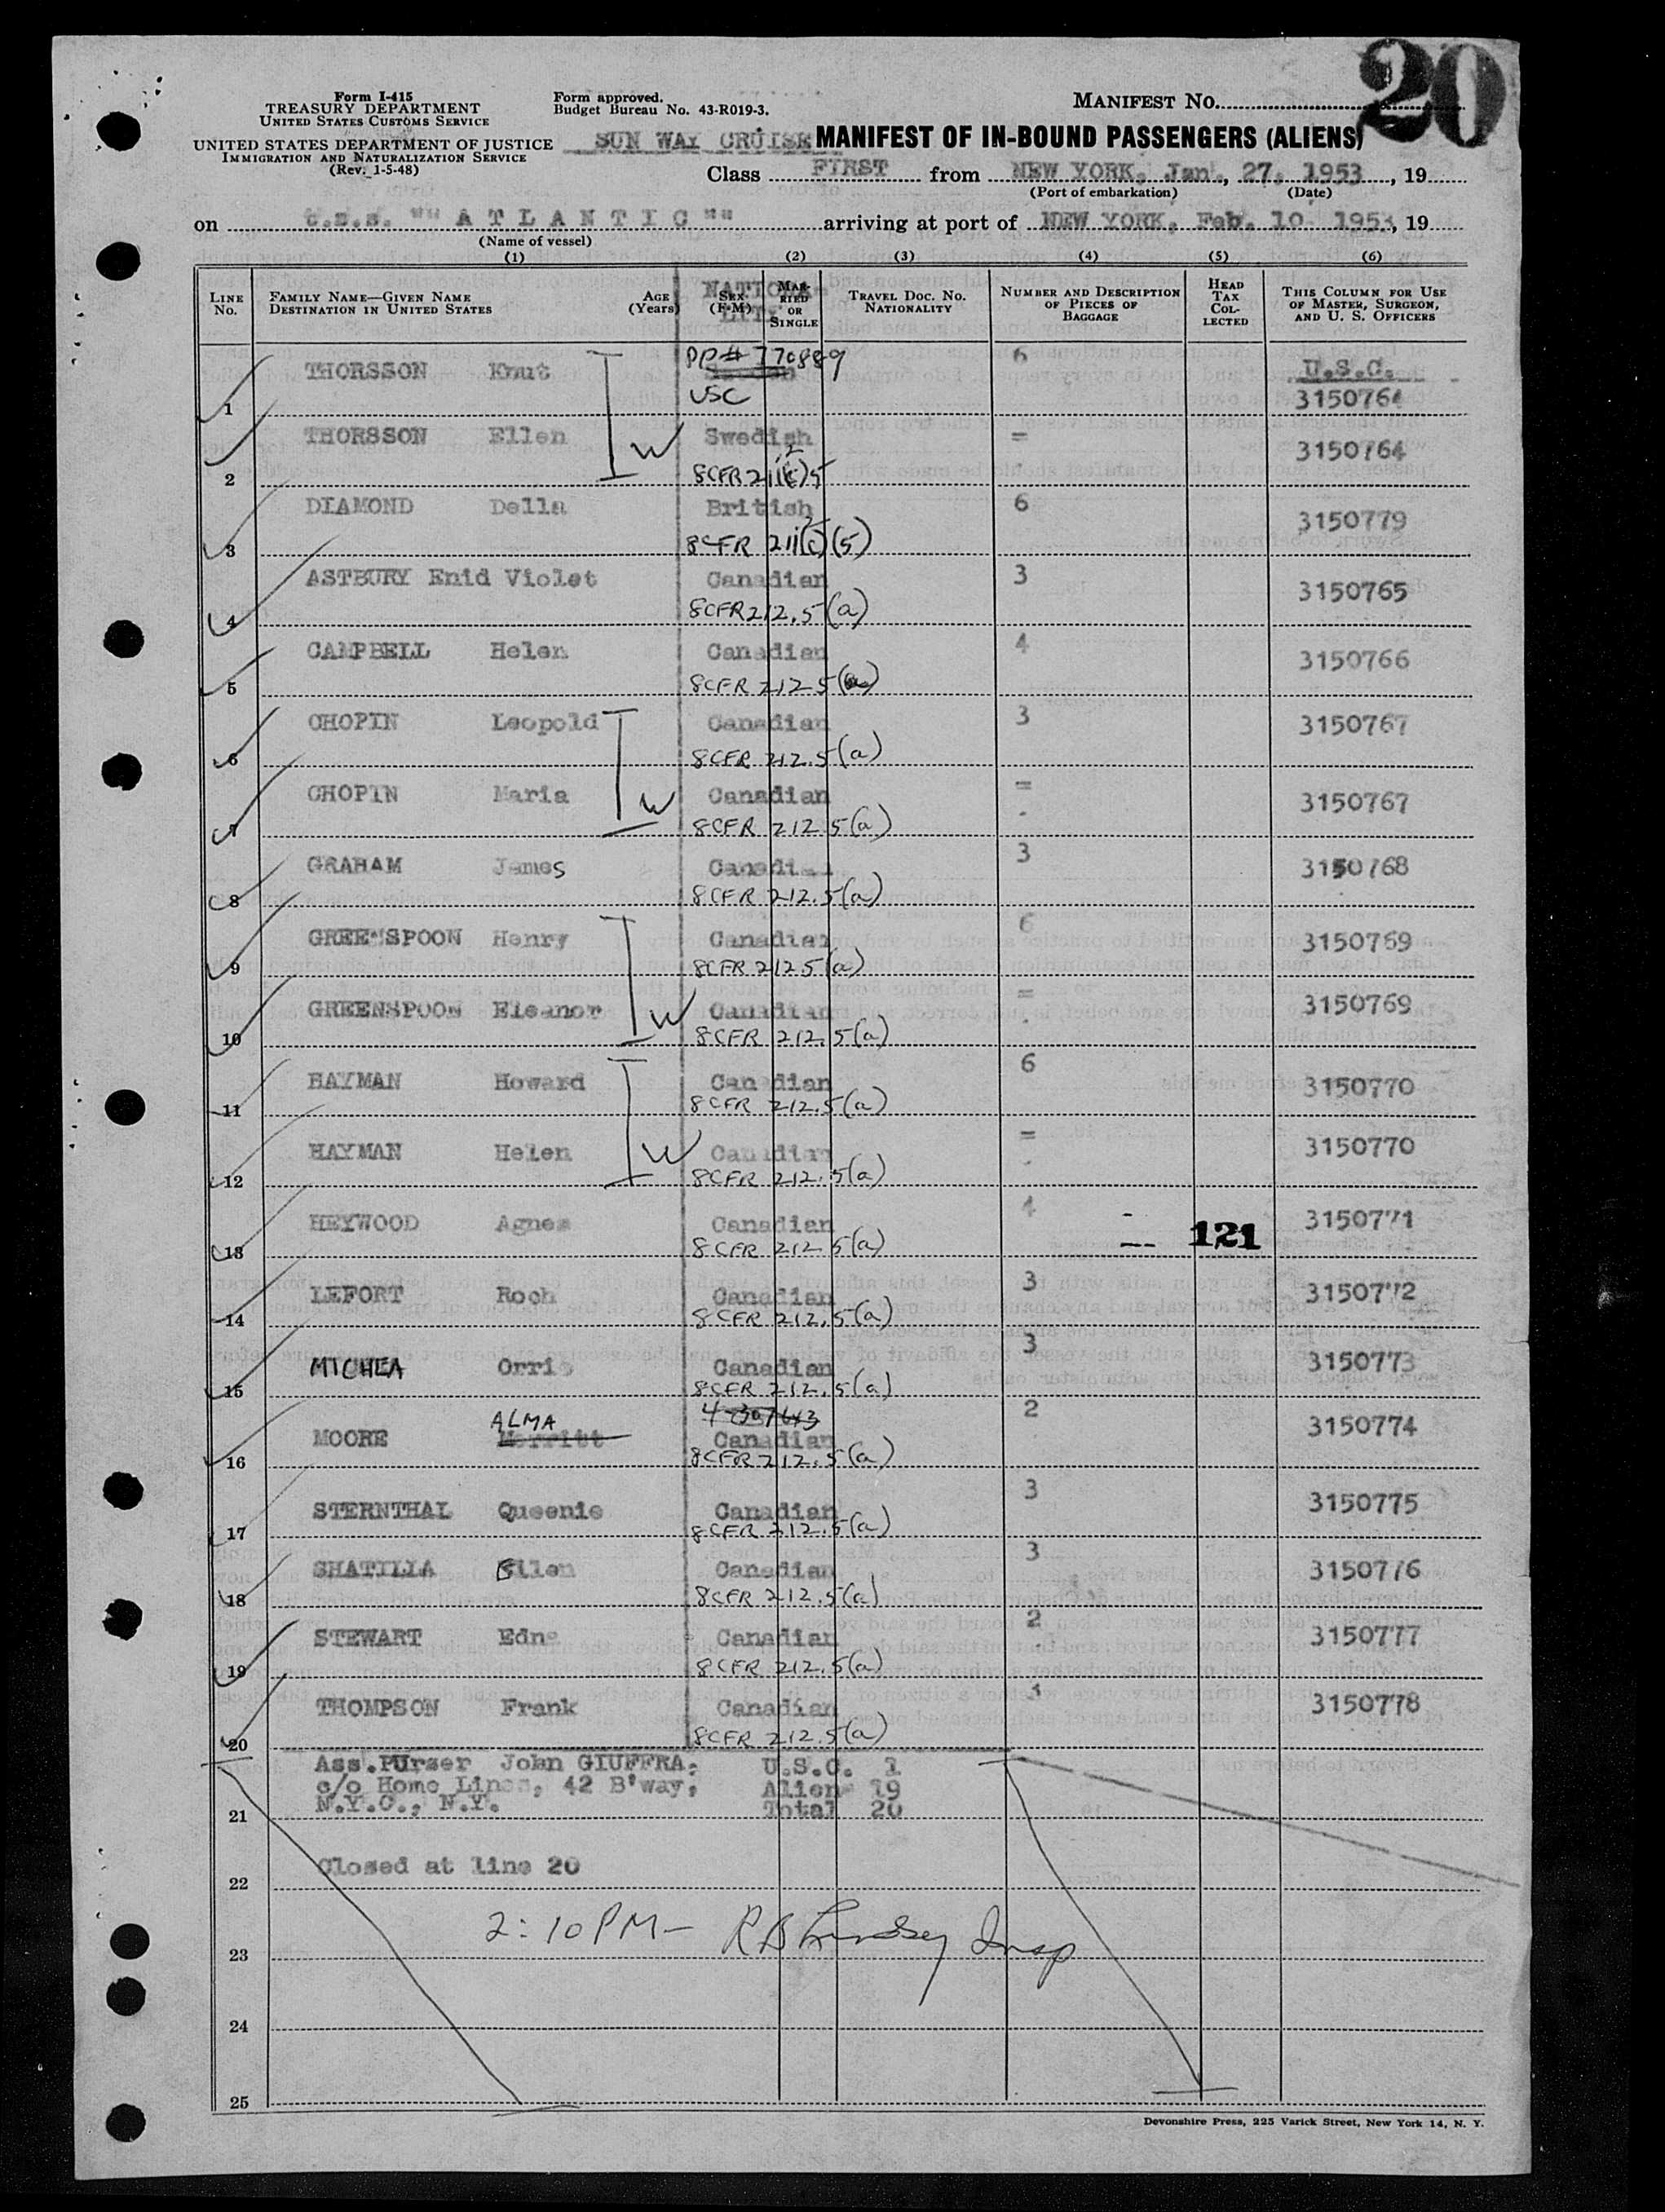 20
Form I-415
TREASURY DEPARTMENT
UNITED STATES CUSTOMS SERVICE
UNITED STATES DEPARTMENT OF JUSTICE
IMMIGRATION AND NATURALIZATION SERVICE
(Rev. 1-5-48)
Form approved.
Budget Bureau No. 43-R019-3.
MANIFEST No.
SUN WAY CRUISE MANIFEST OF IN-BOUND PASSENGERS (ALIENS)
Class FIRST from NEW YORK, Jan., 27, 1953, 19
(Port of embarkation) (Date)
on t.s.s. ""ATLANTIC"" arriving at port of NEW YORK, Feb. 10 1953, 19
(Name of vessel)
(1) (2) (3) (4) (5) (6)
LINE No. FAMILY NAME—GIVEN NAME DESTINATION IN UNITED STATES AGE (Years) SEX (F-M) NATIONALITY MARRIED OR SINGLE TRAVEL DOC. NO. NATIONALITY NUMBER AND DESCRIPTION OF PIECES OF BAGGAGE HEAD TAX COLLECTED THIS COLUMN FOR USE OF MASTER, SURGEON, AND U. S. OFFICERS
PP# 770889 6 U.S.C.
1 THORSSON Knut USC 3150764
2 THORSSON Ellen W Swedish = 3150764
8CFR 211(c)5
3 DIAMOND Della British 6 3150779
8CFR 211(c)(5)
4 ASTBURY Enid Violet Canadian 3 3150765
8CFR 212.5(a)
5 CAMPBELL Helen Canadian 4 3150766
8CFR 212 5(a)
6 CHOPIN Leopold Canadian 3 3150767
8CFR 212.5(a)
7 CHOPIN Maria W Canadian = 3150767
8CFR 212 5(a)
8 GRAHAM James Canadi 3 3150768
8CFR 212.5(a)
9 GREENSPOON Henry Canadian 6 3150769
8CFR 212 5(a)
10 GREENSPOON Eleanor W Canadian = 3150769
8CFR 212.5(a)
11 HAYMAN Howard Canadian 6 3150770
8CFR 212.5(a)
12 HAYMAN Helen W Canadian = 3150770
8CFR 212.5(a)
13 HEYWOOD Agnes Canadian 4 121 3150771
8CFR 212 5(a)
14 LEFORT Roch Canadian 3 3150772
8CFR 212.5(a)
15 MICHEA Orris Canadian 3 3150773
8CFR 212.5(a)
ALMA
16 MOORE Merritt Canadian 2 3150774
8CFR 212.5(a)
17 STERNTHAL Queenie Canadian 3 3150775
8CFR 212.5(a)
18 SHATILLA Ellen Canadian 3 3150776
8CFR 212.5(a)
19 STEWART Edna Canadian 2 3150777
8CFR 212.5(a)
20 THOMPSON Frank Canadian 3150778
8CFR 212.5(a)
Ass.Purser John GIUFFRA, U.S.C. 1
c/o Home Lines, 42 B'way, Alien 19
21 N.Y.C., N.Y. Total 20
22 Closed at line 20
23 2:10 PM — R B Lindsey Insp
24
25
Devonshire Press, 225 Varick Street, New York 14, N. Y.